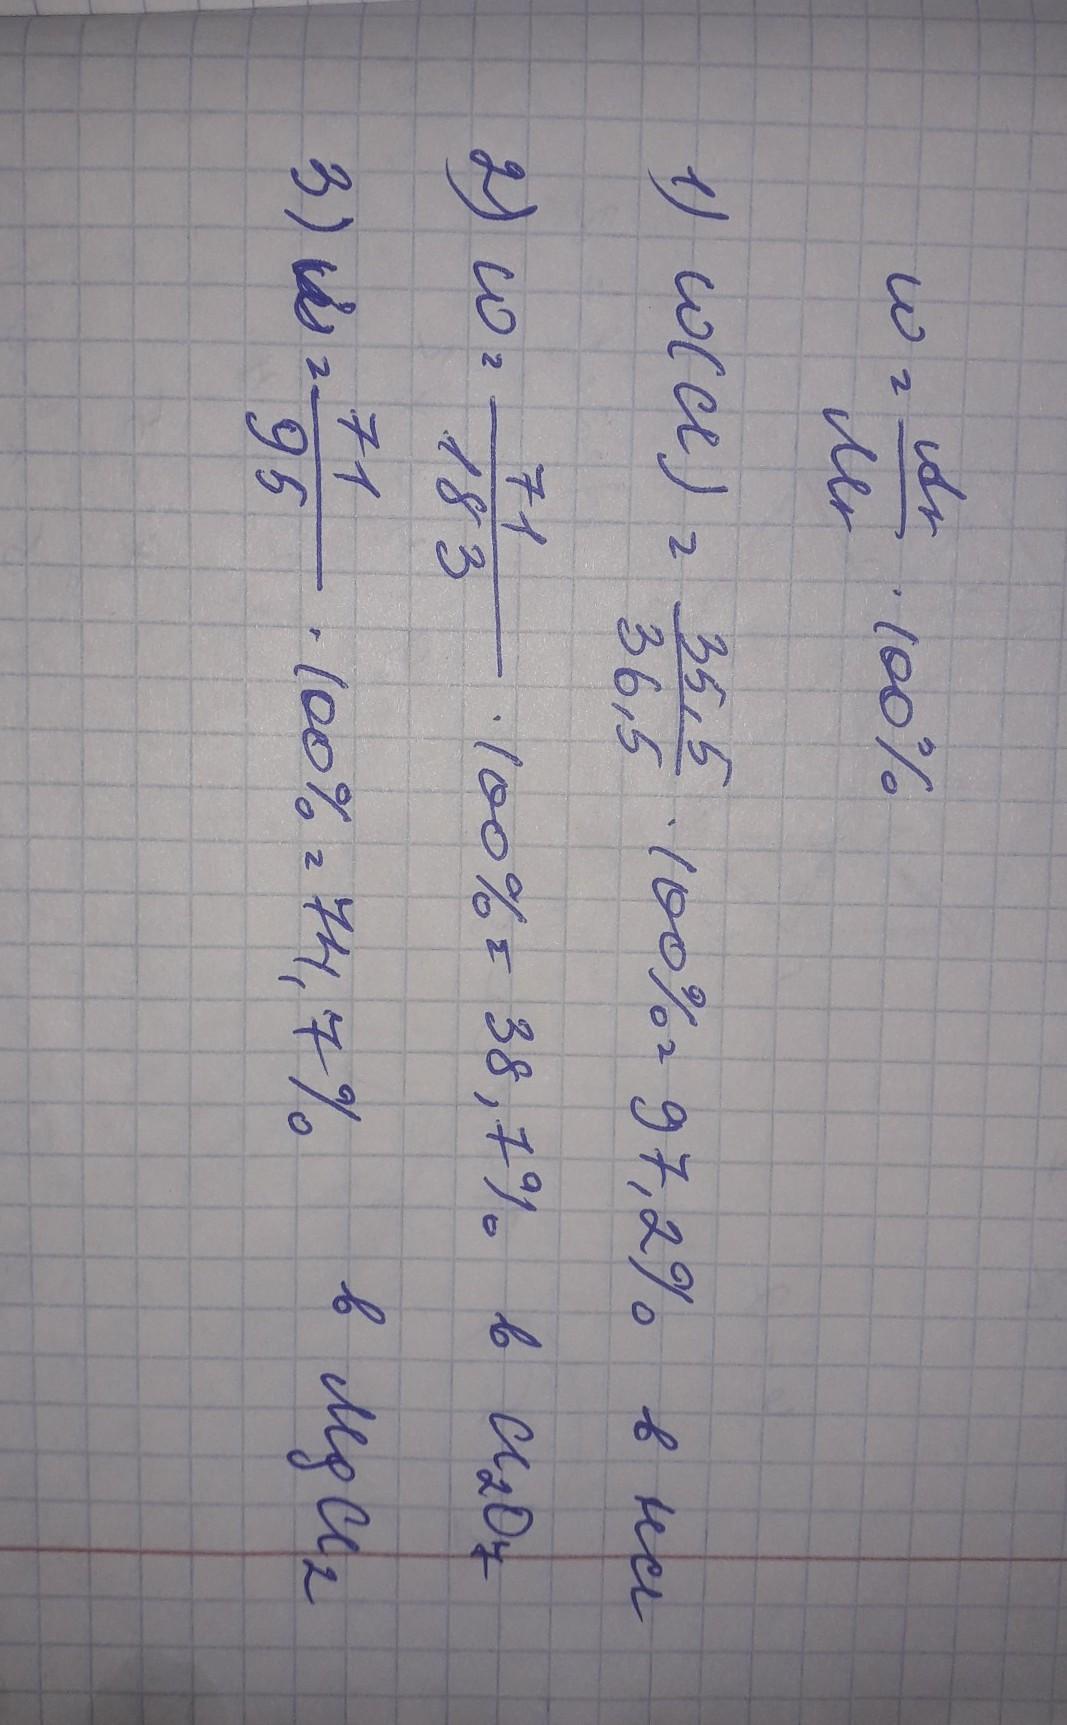 w = Ar/Mr · 100%
1) w(Cl) = 35,5/36,5 · 100% = 97,2% в HCl
2) w = 71/183 · 100% = 38,7% в Cl₂O₇
3) w = 71/95 · 100% = 74,7% в MgCl₂